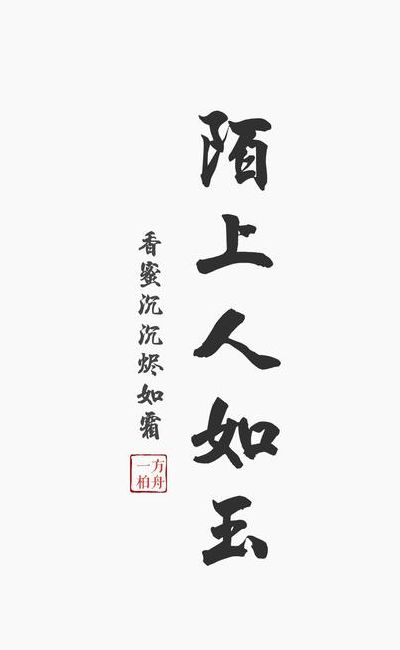 陌上人如玉
香蜜沉沉烬如霜
方舟
一柏